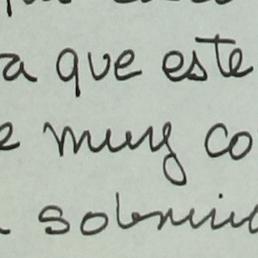 a que este
muy co
sobrino